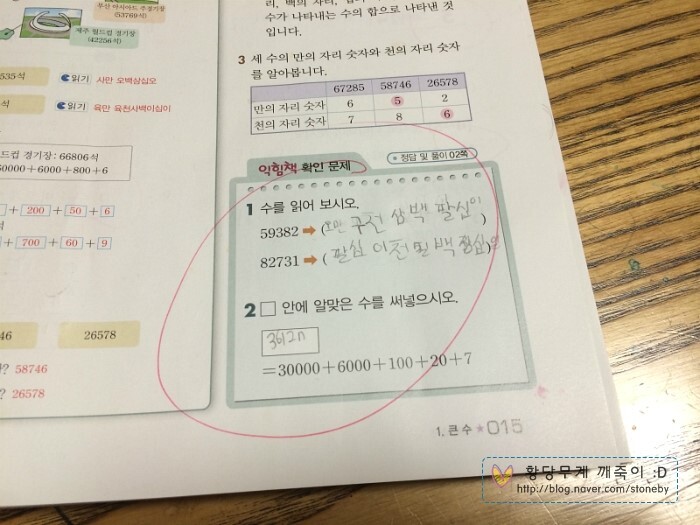 부산 아시아드 주경기장
(53769석)
제주 월드컵 경기장
(42256석)
535석
읽기 사만 오백삼십오
석
읽기 육만 육천사백이십이
드컵 경기장: 66806석
60000+6000+800+6
+ 200 + 50 + 6
+ 700 + 60 + 9
46
26578
? 58746
? 26578
수가 나타내는 수의 합으로 나타낸 것
입니다.
3 세 수의 만의 자리 숫자와 천의 자리 숫자
를 알아봅니다.
67285 58746 26578
만의 자리 숫자 6 5 2
천의 자리 숫자 7 8 6
익힘책 확인 문제
정답 및 풀이 02쪽
1 수를 읽어 보시오.
59382 ➡ (오만 구천 삼백 팔십이)
82731 ➡ (팔십 이천 칠백
2 □ 안에 알맞은 수를 써넣으시오.
=30000+6000+100+20+7
1. 큰 수 * 015
황당무계 깨죽이 :D
http://blog.naver.com/stoneby